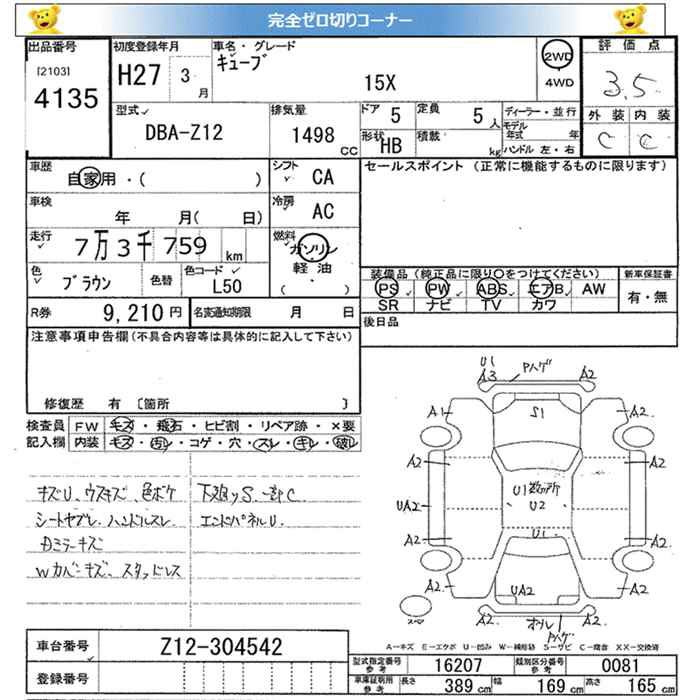 完全ゼロ切りコーナー
出品番号
[2103]
4135
初度登録年月
H27 3 月
車名・グレード
キューブ
15X
2WD
4WD
評価点
3.5
外装 内装
C C
型式
DBA-Z12
排気量
1498 CC
ドア 5
定員 5 人
形状 HB
積載 kg
ディーラー・並行
モデル年式 年
ハンドル 左・右
車歴
自家用・( )
シフト CA
車検
年 月( 日)
冷房 AC
走行
7万3千759 km
燃料
ガソリン
軽油
( ・ )
色
ブラウン
色替
色コード
L50
セールスポイント (正常に機能するものに限ります)
装備品(純正品に限り○をつけてください)
新車保証書
PS PW ABS エアB AW
有・無
SR ナビ TV カワ
後日品
R券 9,210 円
名変通知期限 月 日
注意事項申告欄(不具合内容等は具体的に記入して下さい)
修復歴 有 〔箇所 〕
検査員記入欄
FW キズ・飛石・ヒビ割・リペア跡・×要
内装 キズ・汚レ・コゲ・穴・スレ・キレ・破レ
キズU、ウスキズ、色ボケ
シートヤブレ、ハンドルスレ
Wカバーキズ、スタッドレス
下廻りS、一部C
エンドパネルU.
U1
A3
Pハゲ
A2
A1
S1
A2.
A2
A2
UA2
U1数ヶ所
U2
A2.
A2
U1
A2.
A2.
UA2
A2
A2.
A2
Pハゲ
A-キズ E-エクボ U-凹み W-補修跡 S-サビ C-腐食 XX-交換済
車台番号
Z12-304542
登録番号
型式指定番号 参考 16207
類別区分番号 参考 0081
車庫証明用 参考 長さ 389 cm 幅 169 cm 高さ 165 cm